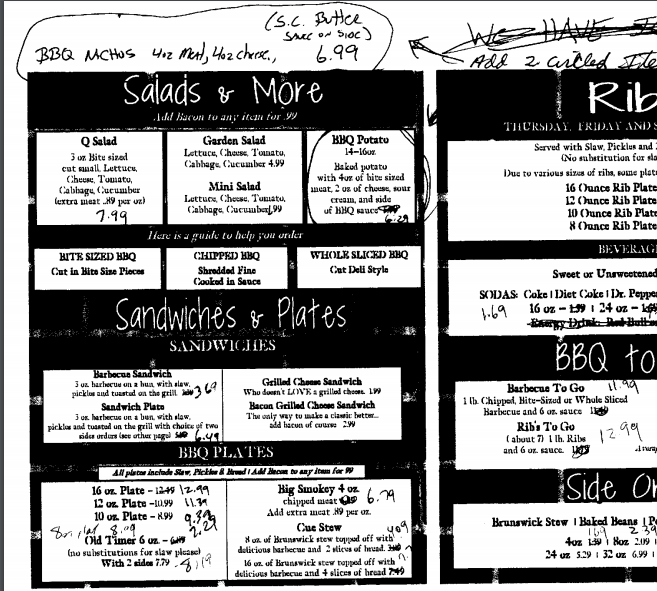 (S.C. Butter
Sauce on Side)
BBQ NACHOS 4oz Meat, 4oz cheese, 6.99
WE HAVE
Add 2 circled Ite
Salads & More
Add Bacon to any item for .99
Q Salad
3 oz Bite sized
cut small, Lettuce,
Cheese, Tomato,
Cabbage, Cucumber
(extra meat .89 per oz)
7.99
Garden Salad
Lettuce, Cheese, Tomato,
Cabbage, Cucumber 4.99
Mini Salad
Lettuce, Cheese, Tomato,
Cabbage, Cucumber 1.99
BBQ Potato
14-16oz.
Baked potato
with 4oz of bite sized
meat, 2 oz of cheese, sour
cream, and side
of BBQ sauce
6.29
Here is a guide to help you order
BITE SIZED BBQ
Cut in Bite Size Pieces
CHIPPED BBQ
Shredded Fine
Cooked in Sauce
WHOLE SLICED BBQ
Cut Deli Style
Sandwiches & Plates
SANDWICHES
Barbecue Sandwich
3 oz. barbecue on a bun, with slaw,
pickles and toasted on the grill 3.69
Sandwich Plate
3 oz. barbecue on a bun, with slaw,
pickles and toasted on the grill with choice of two
sides orders (see other page) 6.49
Grilled Cheese Sandwich
Who doesn't LOVE a grilled cheese. 1.99
Bacon Grilled Cheese Sandwich
The only way to make a classic better...
add bacon of course 2.99
BBQ PLATES
All plates include Slaw, Pickles & Bread | Add Bacon to any item for .99
16 oz. Plate - 12.49 12.99
12 oz. Plate -10.99 11.39
10 oz. Plate - 8.99 9.39
8oz. Plat 8.09
Old Timer 6 oz. - 7.29
(no substitutions for slaw please)
With 2 sides 7.79 8.19
Big Smokey 4 oz.
chipped meat 6.79
Add extra meat .89 per oz.
Cue Stew
8 oz. of Brunswick stew topped off with 4.09
delicious barbecue and 2 slices of bread.
16 oz. of Brunswick stew topped off with
delicious barbecue and 4 slices of bread 7.49
Rib
THURSDAY, FRIDAY AND S
Served with Slaw, Pickles and
(No substitution for sla
Due to various sizes of ribs, some plat
16 Ounce Rib Plate
12 Ounce Rib Plate
10 Ounce Rib Plate
8 Ounce Rib Plate
BEVERAG
Sweet or Unsweetened
SODAS: Coke | Diet Coke | Dr. Peppe
1.69 16 oz - 1.59 | 24 oz -
Energy Drink: Red Bull
BBQ to
Barbecue To Go 11.99
1 lb. Chipped, Bite-Sized or Whole Sliced
Barbecue and 6 oz. sauce
Rib's To Go
(about 7) 1 lb. Ribs 12.99
and 6 oz. sauce
Side Or
Brunswick Stew | Baked Beans | Po
1.69 2.39
4oz 1.59 | 8oz 2.09
24 oz 5.29 | 32 oz 6.99 |